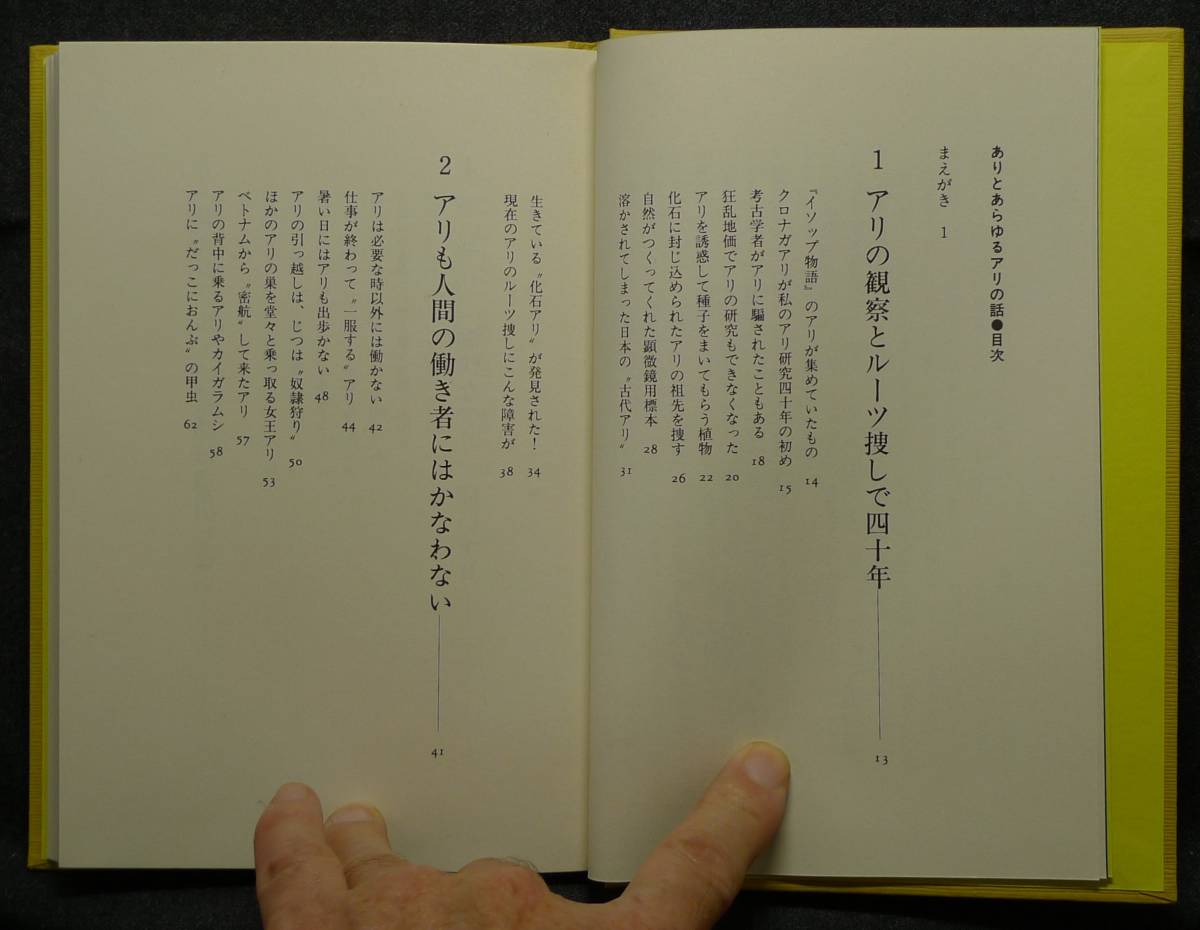 ありとあらゆるアリの話●目次
まえがき 1
1 アリの観察とルーツ捜しで四十年 13
『イソップ物語』のアリが集めていたもの 14
クロナガアリが私のアリ研究四十年の初め 15
考古学者がアリに騙されたこともある 18
狂乱地価でアリの研究もできなくなった 20
アリを誘惑して種子をまいてもらう植物 22
化石に封じ込められたアリの祖先を捜す 26
自然がつくってくれた顕微鏡用標本 28
溶かされてしまった日本の〝古代アリ〟 31
生きている〝化石アリ〟が発見された! 34
現在のアリのルーツ捜しにこんな障害が 38
2 アリも人間の働き者にはかなわない 41
アリは必要な時以外には働かない 42
仕事が終わって〝一服する〟アリ 44
暑い日にはアリも出歩かない 48
アリの引っ越しは、じつは〝奴隷狩り〟 50
ほかのアリの巣を堂々と乗っ取る女王アリ 53
ベトナムから〝密航〟して来たアリ 57
アリの背中に乗るアリやカイガラムシ 58
アリに〝だっこにおんぶ〟の甲虫 62